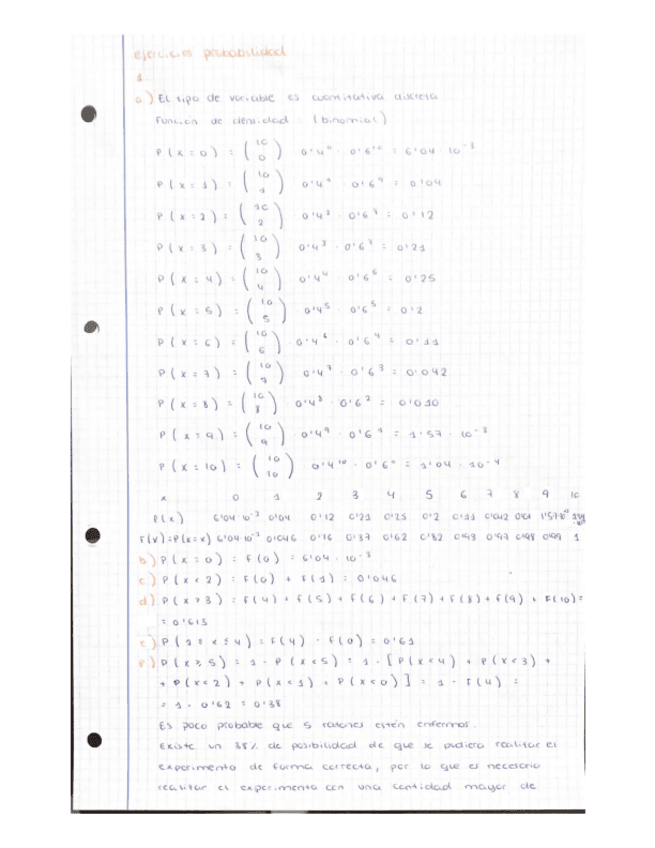 ejercicios probabilidad
1
a) El tipo de variable es cuantitativa discreta
Función de densidad : (binomial)
P (x = 0) = (10 0) 0'4⁰ · 0'6¹⁰ = 6'04 · 10⁻³
P (x = 1) = (10 1) 0'4¹ · 0'6⁹ = 0'04
P (x = 2) = (10 2) 0'4² · 0'6⁸ = 0'12
P (x = 3) = (10 3) 0'4³ · 0'6⁷ = 0'21
P (x = 4) = (10 4) 0'4⁴ · 0'6⁶ = 0'25
P (x = 5) = (10 5) 0'4⁵ · 0'6⁵ = 0'2
P (x = 6) = (10 6) · 0'4⁶ · 0'6⁴ = 0'11
P (x = 7) = (10 7) 0'4⁷ · 0'6³ = 0'042
P (x = 8) = (10 8) 0'4⁸ · 0'6² = 0'010
P (x = 9) = (10 9) 0'4⁹ · 0'6¹ = 1'57 · 10⁻³
P (x = 10) = (10 10) 0'4¹⁰ · 0'6⁰ = 1'04 · 10⁻⁴
x 0 1 2 3 4 5 6 7 8 9 10
P(x) 6'04·10⁻³ 0'04 0'12 0'21 0'25 0'2 0'11 0'042 0'01 1'57·10⁻³
F(x)=P(x≤x) 6'04·10⁻³ 0'046 0'16 0'37 0'62 0'82 0'93 0'97 0'98 0'99 1
b) P (x = 0) = F (0) = 6'04 · 10⁻³
c) P (x < 2) = F(0) + F(1) = 0'046
d) P (x > 3) = F(4) + F(5) + F(6) + F(7) + F(8) + F(9) + F(10) =
= 0'613
e) P (1 ≤ x ≤ 4) = F(4) - F(0) = 0'61
f) P (x ≥ 5) = 1 - P (x < 5) = 1 - [P(x<4) + P(x<3) +
+ P(x<2) + P(x<1) + P(x<0)] = 1 - F(4) =
= 1 - 0'62 = 0'38
Es poco probable que 5 ratones estén enfermos.
Existe un 38% de posibilidad de que se pudiera realizar el
experimento de forma correcta, por lo que es necesario
realizar el experimento con una cantidad mayor de